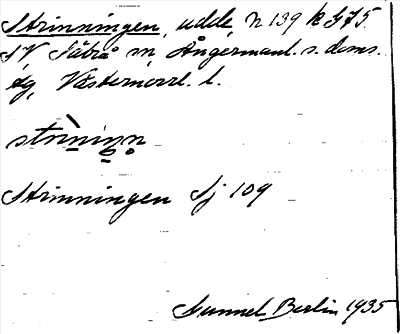 Strinningen, udde, n 139 k 375
SV, Säbrå sn, Ångermanl. s. doms.
tg, Västernorrl. l.
strìninn
Strinningen Sj 109
Gunnel Berlin 1935